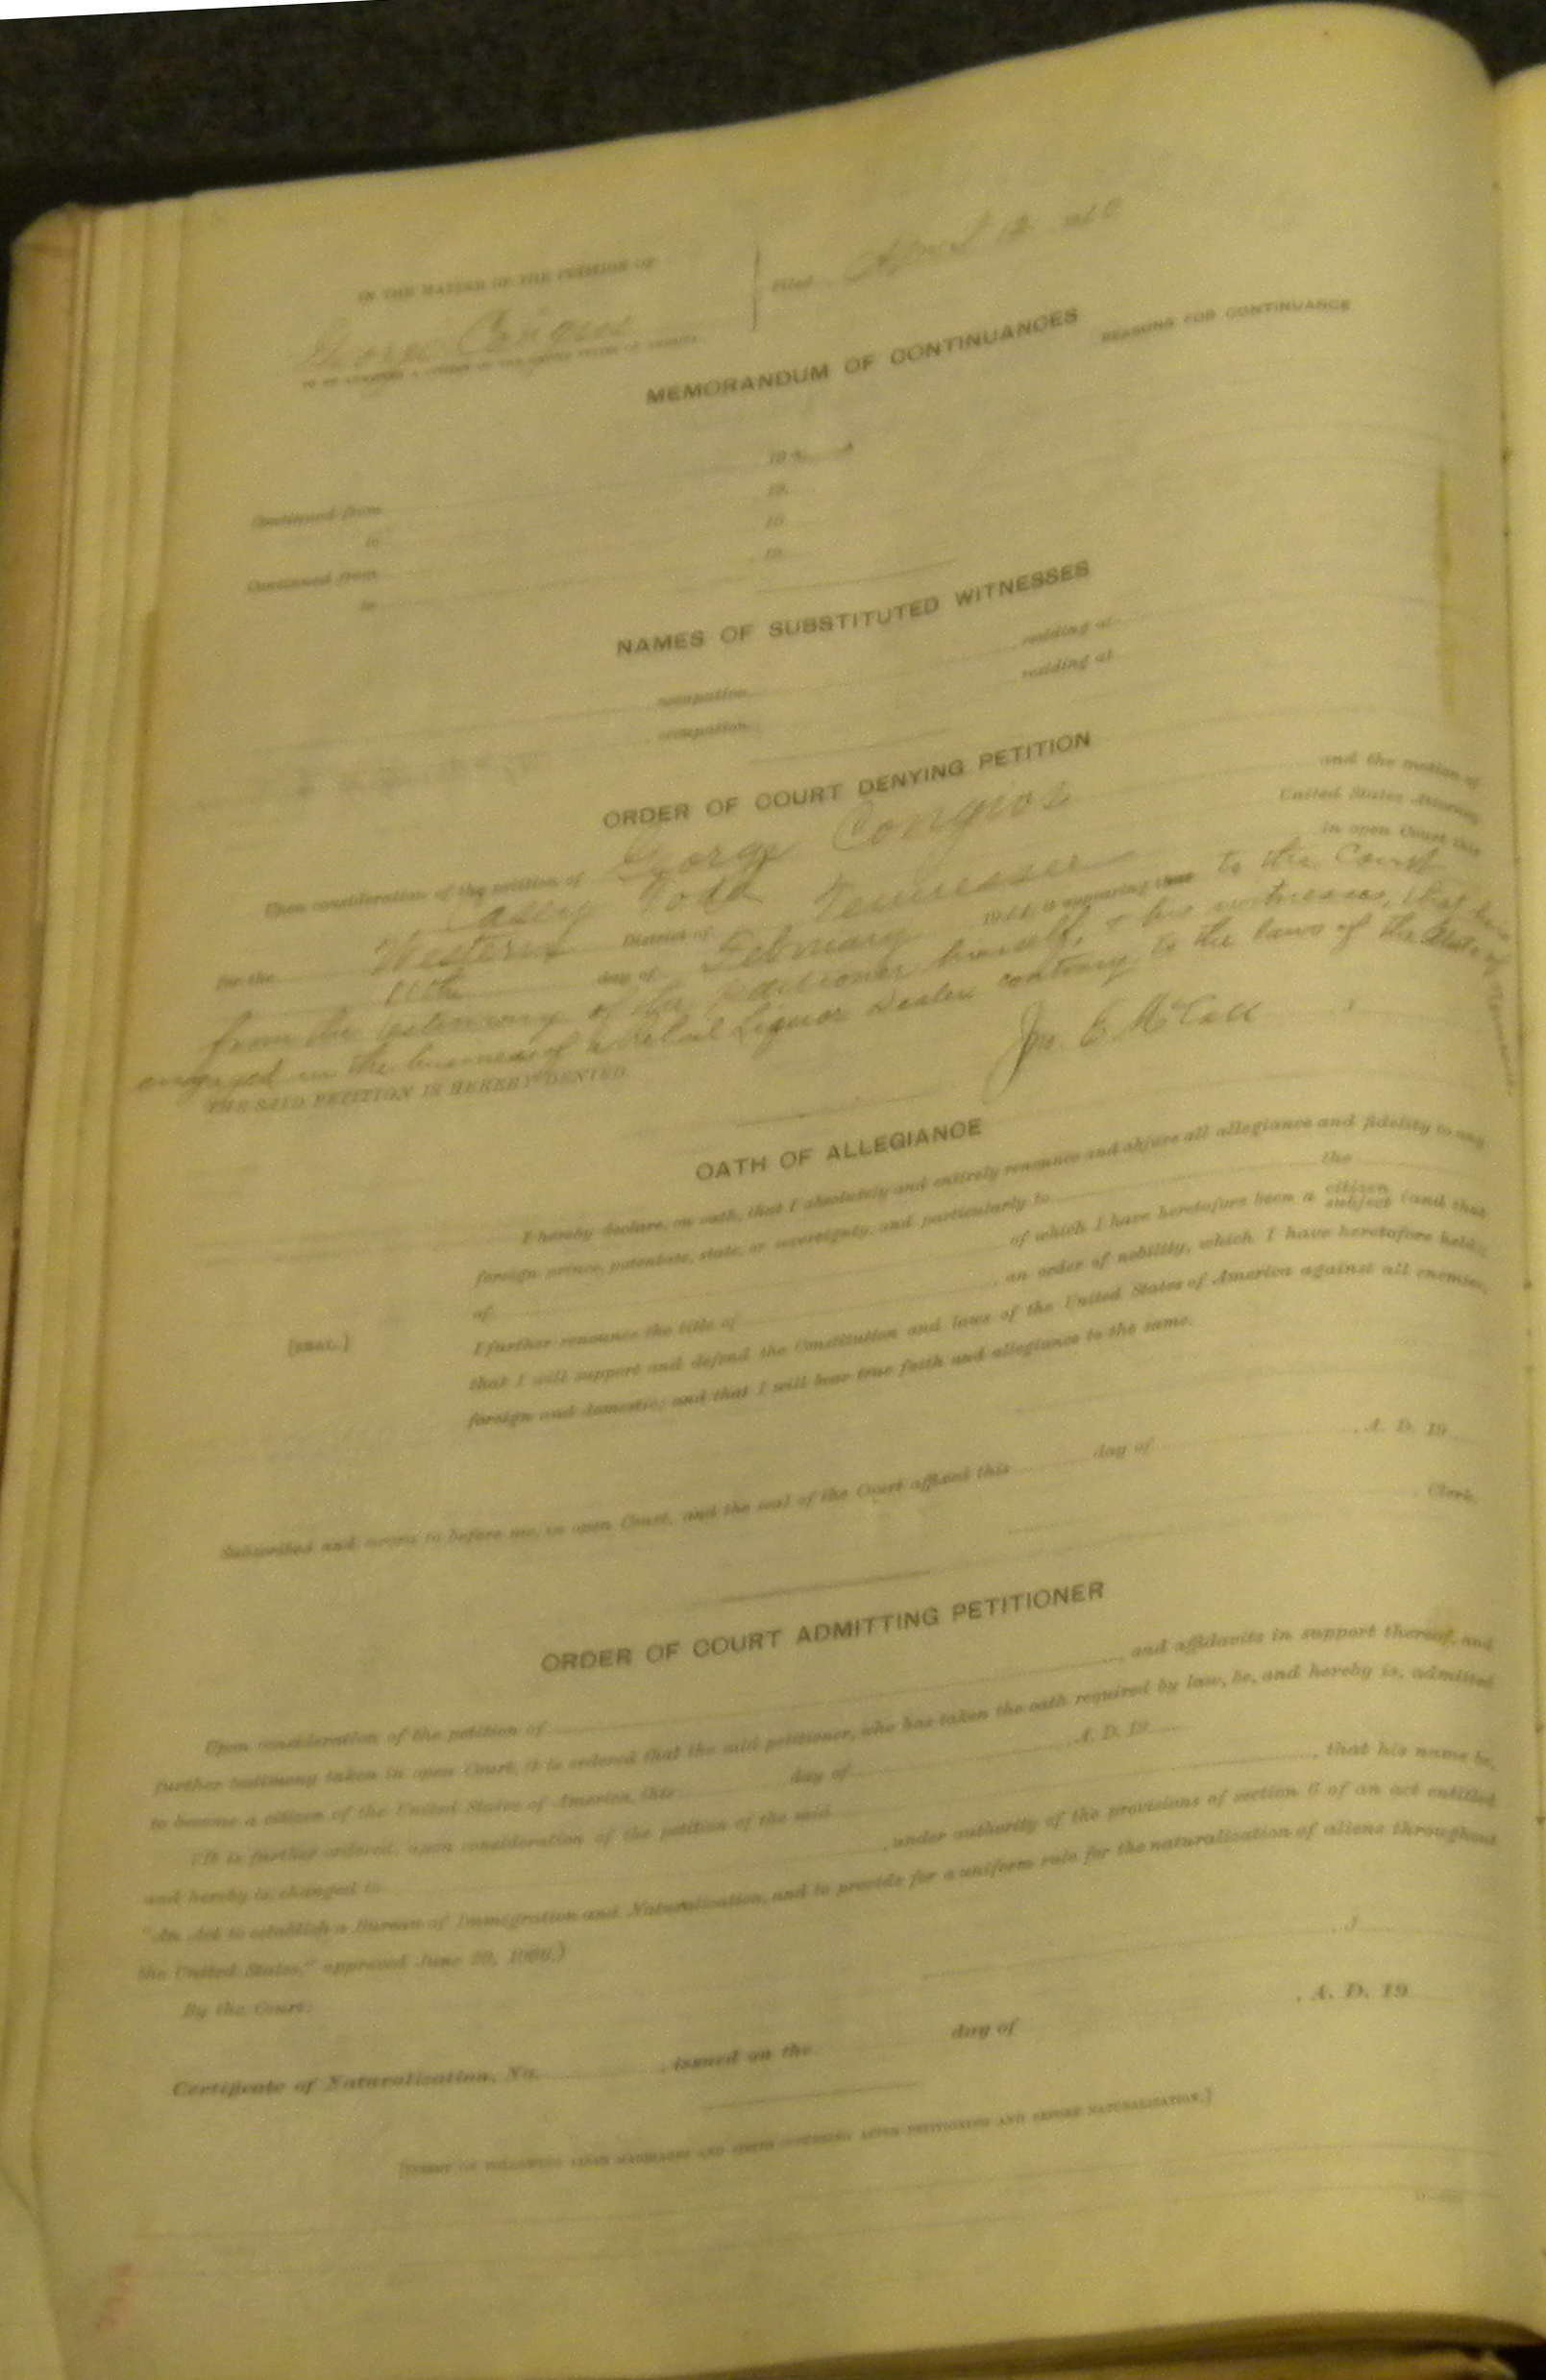 IN THE MATTER OF THE PETITION OF
George Congios
TO BE ADMITTED A CITIZEN OF THE UNITED STATES OF AMERICA.
Filed April 12 1910
MEMORANDUM OF CONTINUANCES
REASONS FOR CONTINUANCE
Continued from 19
to 19
Continued from 19
to 19
NAMES OF SUBSTITUTED WITNESSES
occupation residing at
occupation residing at
ORDER OF COURT DENYING PETITION
Upon consideration of the petition of George Congios and the motion of
Casey Todd United States Attorney
for the Western District of Tennessee in open Court this
11th day of February 1911, it appearing to the Court
from the testimony of the petitioner himself, & his witnesses, that he is
engaged in the business of a Retail Liquor Dealer contrary to the laws of the State of Tennessee
THE SAID PETITION IS HEREBY DENIED.
Jno. E McCall
OATH OF ALLEGIANCE
I hereby declare, on oath, that I absolutely and entirely renounce and abjure all allegiance and fidelity to any
foreign prince, potentate, state, or sovereignty, and particularly to the
of of which I have heretofore been a citizen subject (and that
I further renounce the title of , an order of nobility, which I have heretofore held);
that I will support and defend the Constitution and laws of the United States of America against all enemies,
foreign and domestic; and that I will bear true faith and allegiance to the same.
[SEAL.]
Subscribed and sworn to before me, in open Court, and the seal of the Court affixed this day of , A. D. 19
, Clerk.
ORDER OF COURT ADMITTING PETITIONER
Upon consideration of the petition of , and affidavits in support thereof, and
further testimony taken in open Court, it is ordered that the said petitioner, who has taken the oath required by law, be, and hereby is, admitted
to become a citizen of the United States of America, this day of A. D. 19
(It is further ordered, upon consideration of the petition of the said , that his name be,
and hereby is, changed to , under authority of the provisions of section 6 of an act entitled
"An Act to establish a Bureau of Immigration and Naturalization, and to provide for a uniform rule for the naturalization of aliens throughout
the United States," approved June 29, 1906.)
By the Court:
, J
Certificate of Naturalization, No. , issued on the day of , A. D. 19